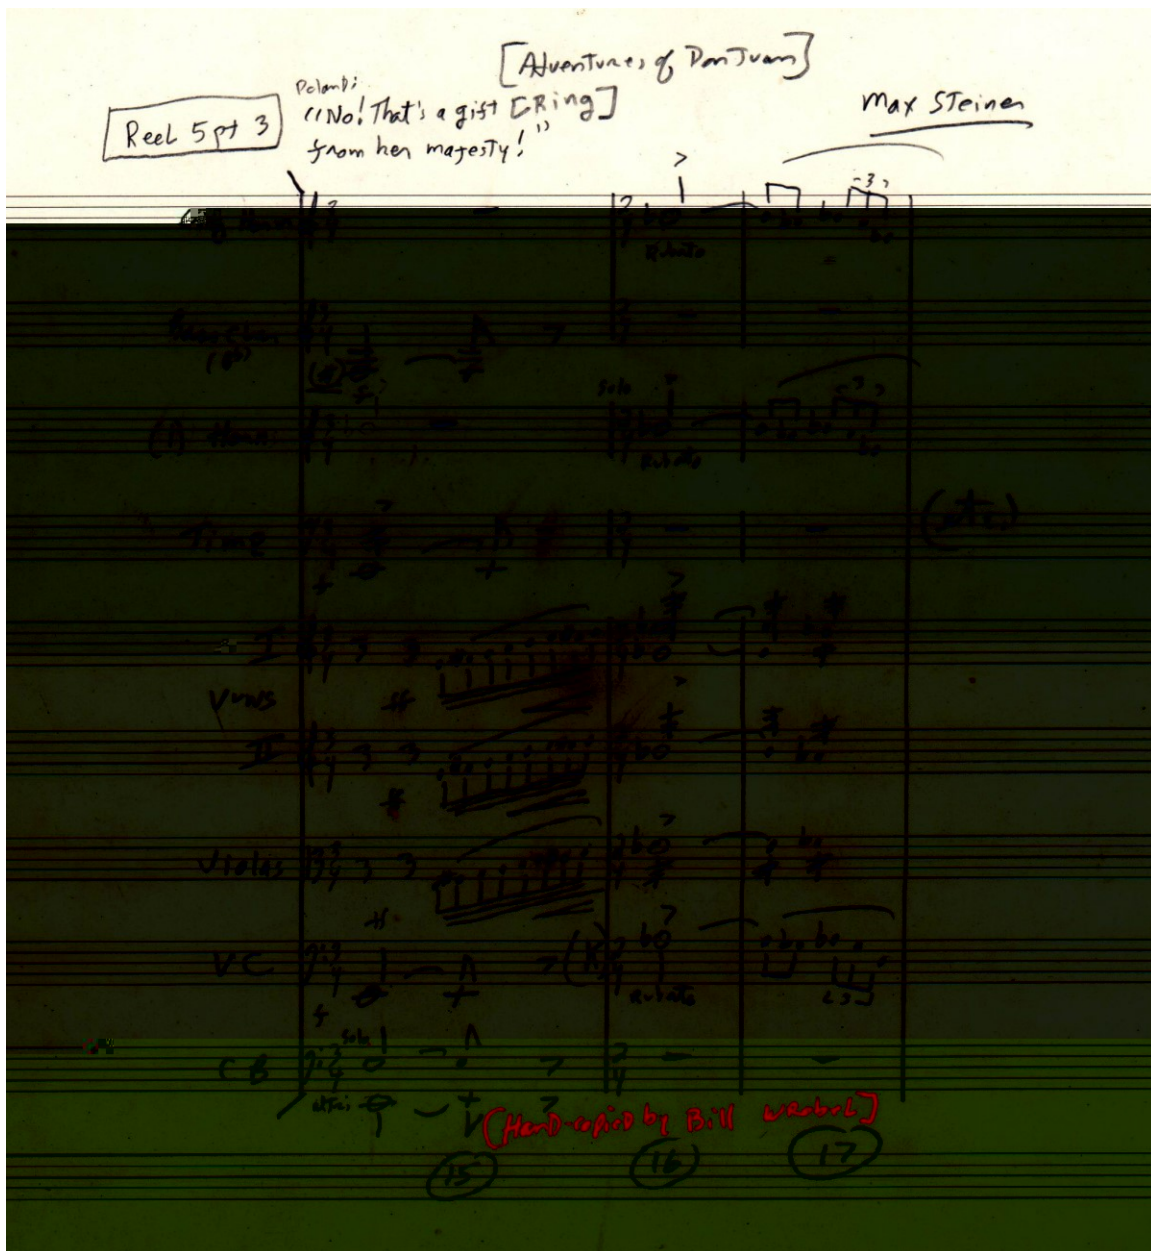 [Adventures of Don Juan]
Reel 5 pt 3
"No! That's a gift [Ring]
from her majesty!"
Max Steiner
-3-
Rubato
Solo
-3-
(A) Horn
Rubato
Timp
(etc.)
I
VLNS
ff
II
ff
Violas
ff
VC
(K)
f
Rubato
-3-
Solo
CB
(Hand-copied by Bill Wrobel]
15 16 17